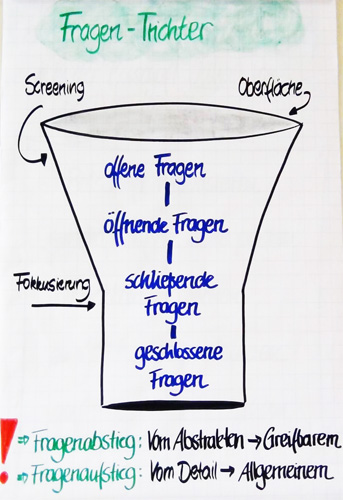 Fragen-Trichter
Screening
Oberfläche
offene Fragen
öffnende Fragen
Fokkusierung
schließende
Fragen
geschlossene
Fragen
! => Fragenabstieg: Vom Abstrakten → Greifbarem
=> Fragenaufstieg: Vom Detail → Allgemeinem